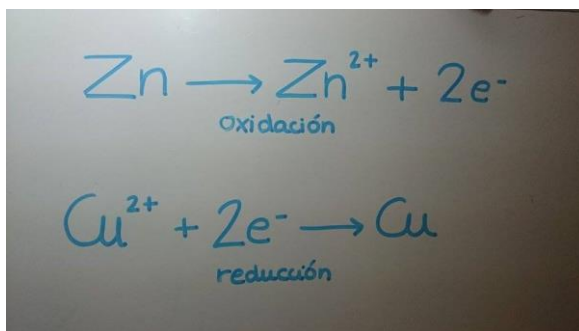 Zn → Zn²⁺ + 2e⁻
oxidación
Cu²⁺ + 2e⁻ → Cu
reducción